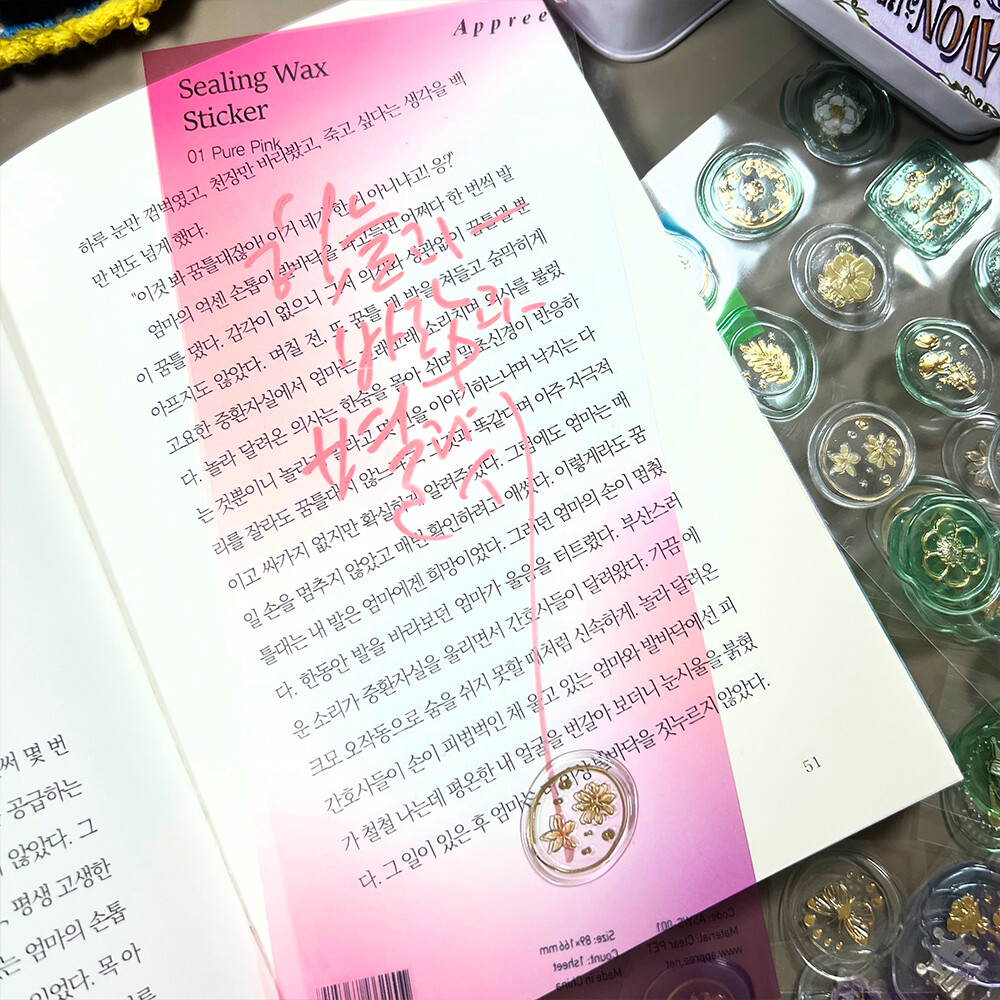 Appree
Sealing Wax
Sticker
01 Pure Pink
하루 눈만 껌벅였고, 천장만 바라봤고, 죽고 싶다는 생각을 백
만 번도 넘게 했다.
"이것 봐 꿈틀대잖아! 이거 네가 한 거 아니냐고! 응?"
엄마의 억센 손톱이 발바닥을 파고들면 어쩌다 한 번씩 발
이 꿈틀댔다. 감각이 없으니 그저 의사와 상관없이 꿈틀댈 뿐
아프지도 않았다. 며칠 전, 또 꿈틀댄 발을 쳐들고 숨막히게
고요한 중환자실에서 엄마는 고래고래 소리치며 의사를 불렀
다. 놀라 달려온 의사는 한숨을 몰아 쉬며 말초신경이 반응하
는 것뿐이니 놀라지 말라고 했다 이야기하느냐며 낙지는 다
리를 잘라도 꿈틀대지 않느냐고 그것과 똑같다며 아주 지극적
이고 싸가지 없지만 확실하게 알려주었다. 그럼에도 엄마는 매
일 손을 멈추지 않았고 매번 확인하려고 애썼다. 이렇게라도 꿈
틀대는 내 발은 엄마에겐 희망이었다. 그러던 엄마의 손이 멈췄
다. 한동안 발을 바라보던 엄마가 울음을 터트렸다. 부산스러
운 소리가 중환자실을 울리면서 간호사들이 달려왔다. 가끔 에
크모 오작동으로 숨을 쉬지 못할 때처럼 신속하게. 놀라 달려온
간호사들이 손이 피범벅인 채 울고 있는 엄마와 발바닥에선 피
가 철철 나는데 평온한 내 얼굴을 번갈아 보더니 눈시울을 붉혔
다. 그 일이 있은 후 엄마는 더 이상 발바닥을 짓누르지 않았다.
51
하늘라
바람과
별과 시
써 몇 번
공급하는
않았다. 그
평생 고생한
는 엄마의 손톱
있었다. 목 아
Size: 89×166mm
Count: 1sheet
Made in China
Code: ASWS 001
Material: Clear PET
www.appree.net